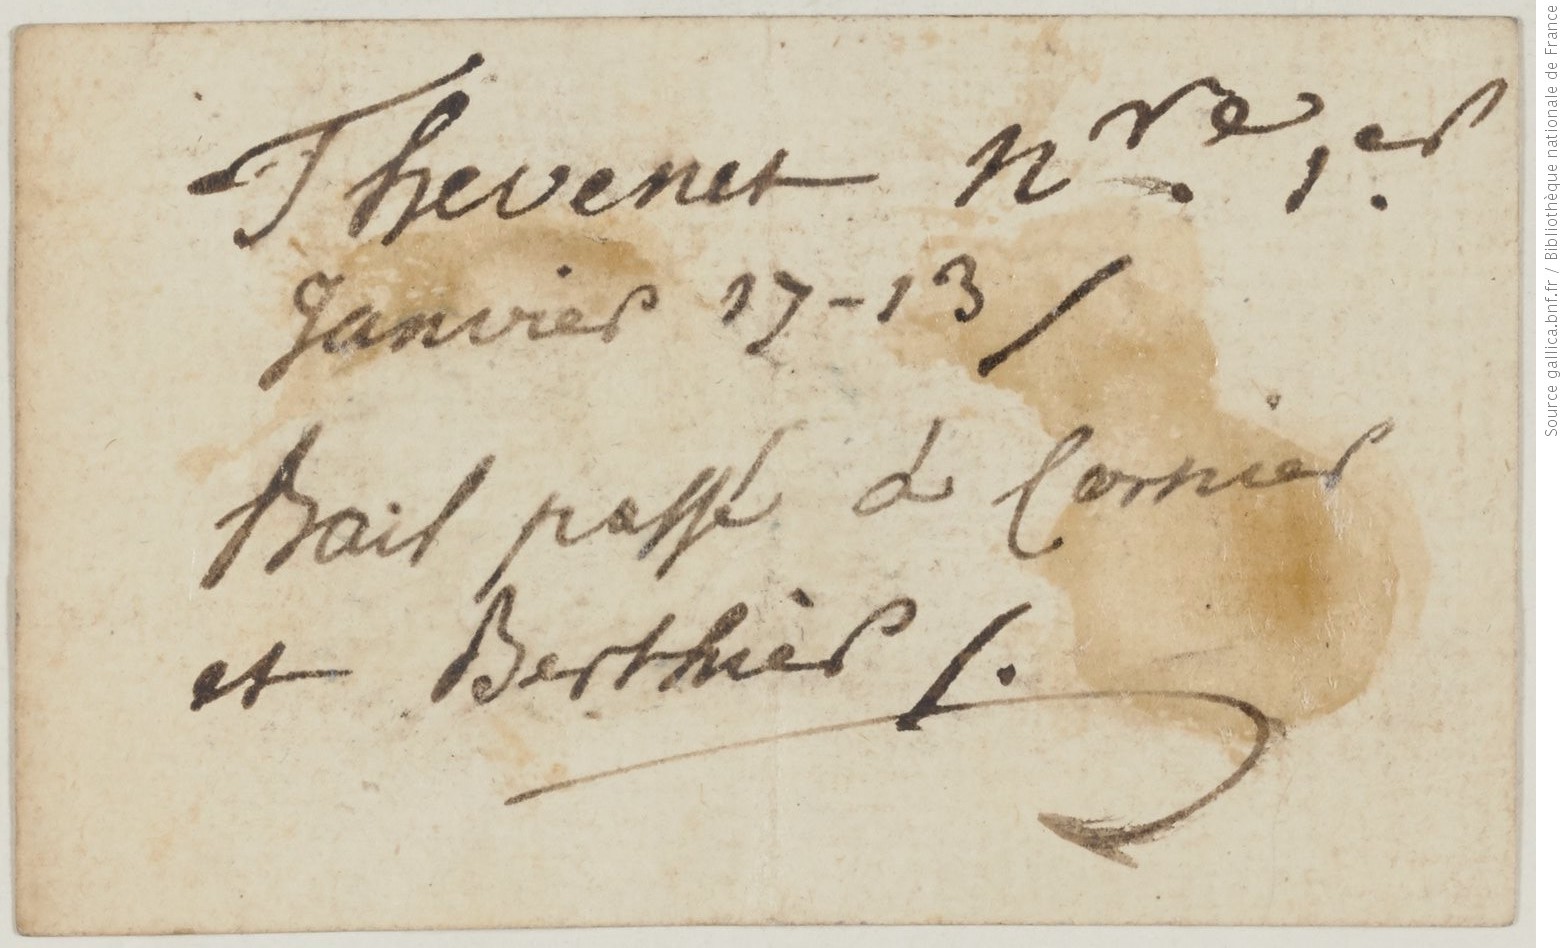 Thevenet nre. 1er.
Janvier 17-13/
Bail passé à Cornier
et Berthier /.
Source gallica.bnf.fr / Bibliothèque nationale de France